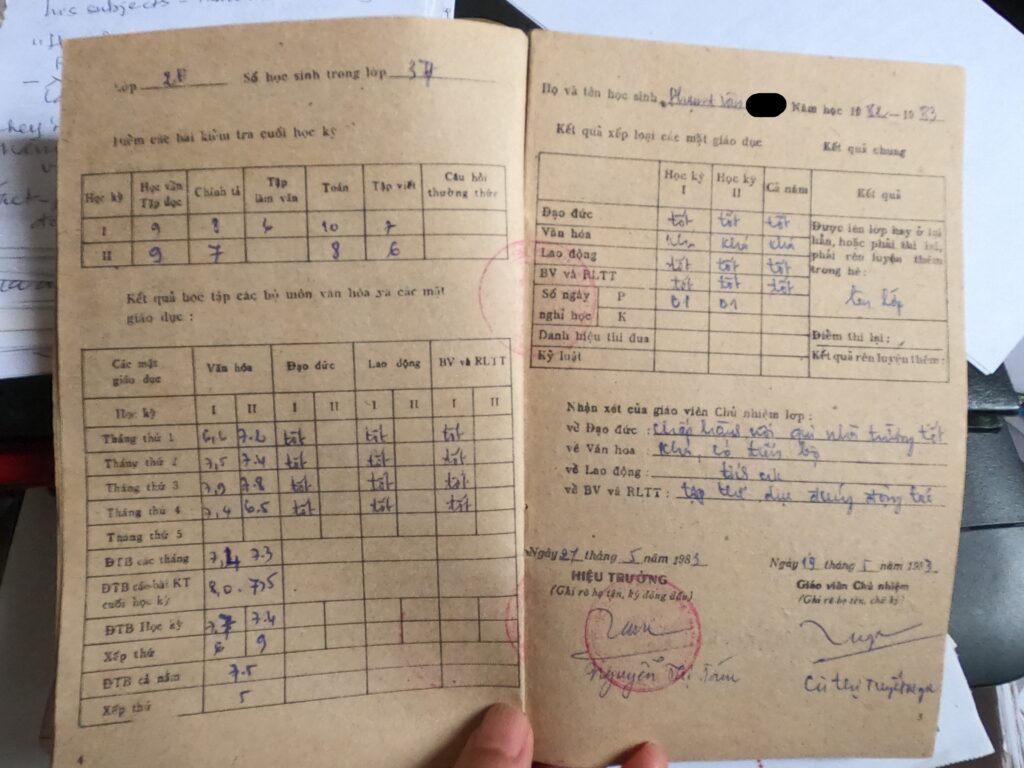 his subjects -
Lớp 2E Số học sinh trong lớp 37
Điểm các bài kiểm tra cuối học kỳ
Học kỳ Học vần Tập đọc Chính tả Tập làm văn Toán Tập viết Câu hỏi thường thức
I 9 8 6 10 7
II 9 7 8 6
Kết quả học tập các bộ môn văn hóa và các mặt
giáo dục :
Các mặt giáo dục Văn hóa Đạo đức Lao động BV và RLTT
Học kỳ I II I II I II I II
Tháng thứ 1 7.2 tốt tốt tốt
Tháng thứ 2 7,5 7.4 tốt tốt tốt
Tháng thứ 3 7,9 7.8 tốt tốt tốt
Tháng thứ 4 7,4 6.5 tốt tốt tốt
Tháng thứ 5
ĐTB các tháng 7,4 7.3
ĐTB các bài KT cuối học kỳ 8,0 7,5
ĐTB Học kỳ 7,7 7.4
Xếp thứ 6 9
ĐTB cả năm 7.5
Xếp thứ 5
4
Họ và tên học sinh Văn Năm học 1982 – 1983
Kết quả xếp loại các mặt giáo dục Kết quả chung
Học kỳ I Học kỳ II Cả năm Kết quả
Đạo đức tốt tốt tốt
Văn hóa Khá Khá khá
Lao động tốt tốt tốt
BV và RLTT tốt tốt tốt
Số ngày nghỉ học P 01 01
K
Danh hiệu thi đua
Kỷ luật
Được lên lớp hay ở lại
hẳn, hoặc phải thi lại,
phải rèn luyện thêm
trong hè :
lên lớp
Điểm thi lại :
Kết quả rèn luyện thêm :
Nhận xét của giáo viên Chủ nhiệm lớp :
về Đạo đức : Chấp hành nhà trường tốt
về Văn hoa : Khá, có tiến bộ
về Lao động :
về BV và RLTT : tập thể dục đúng động tác
Ngày 21 tháng 5 năm 1983
HIỆU TRƯỞNG
(Ghi rõ họ tên, ký đóng dấu)
Nguyễn Thị Tám
Ngày 19 tháng 5 năm 1983
Giáo viên Chủ nhiệm
(Ghi rõ họ tên, chữ ký)
Cù Thị